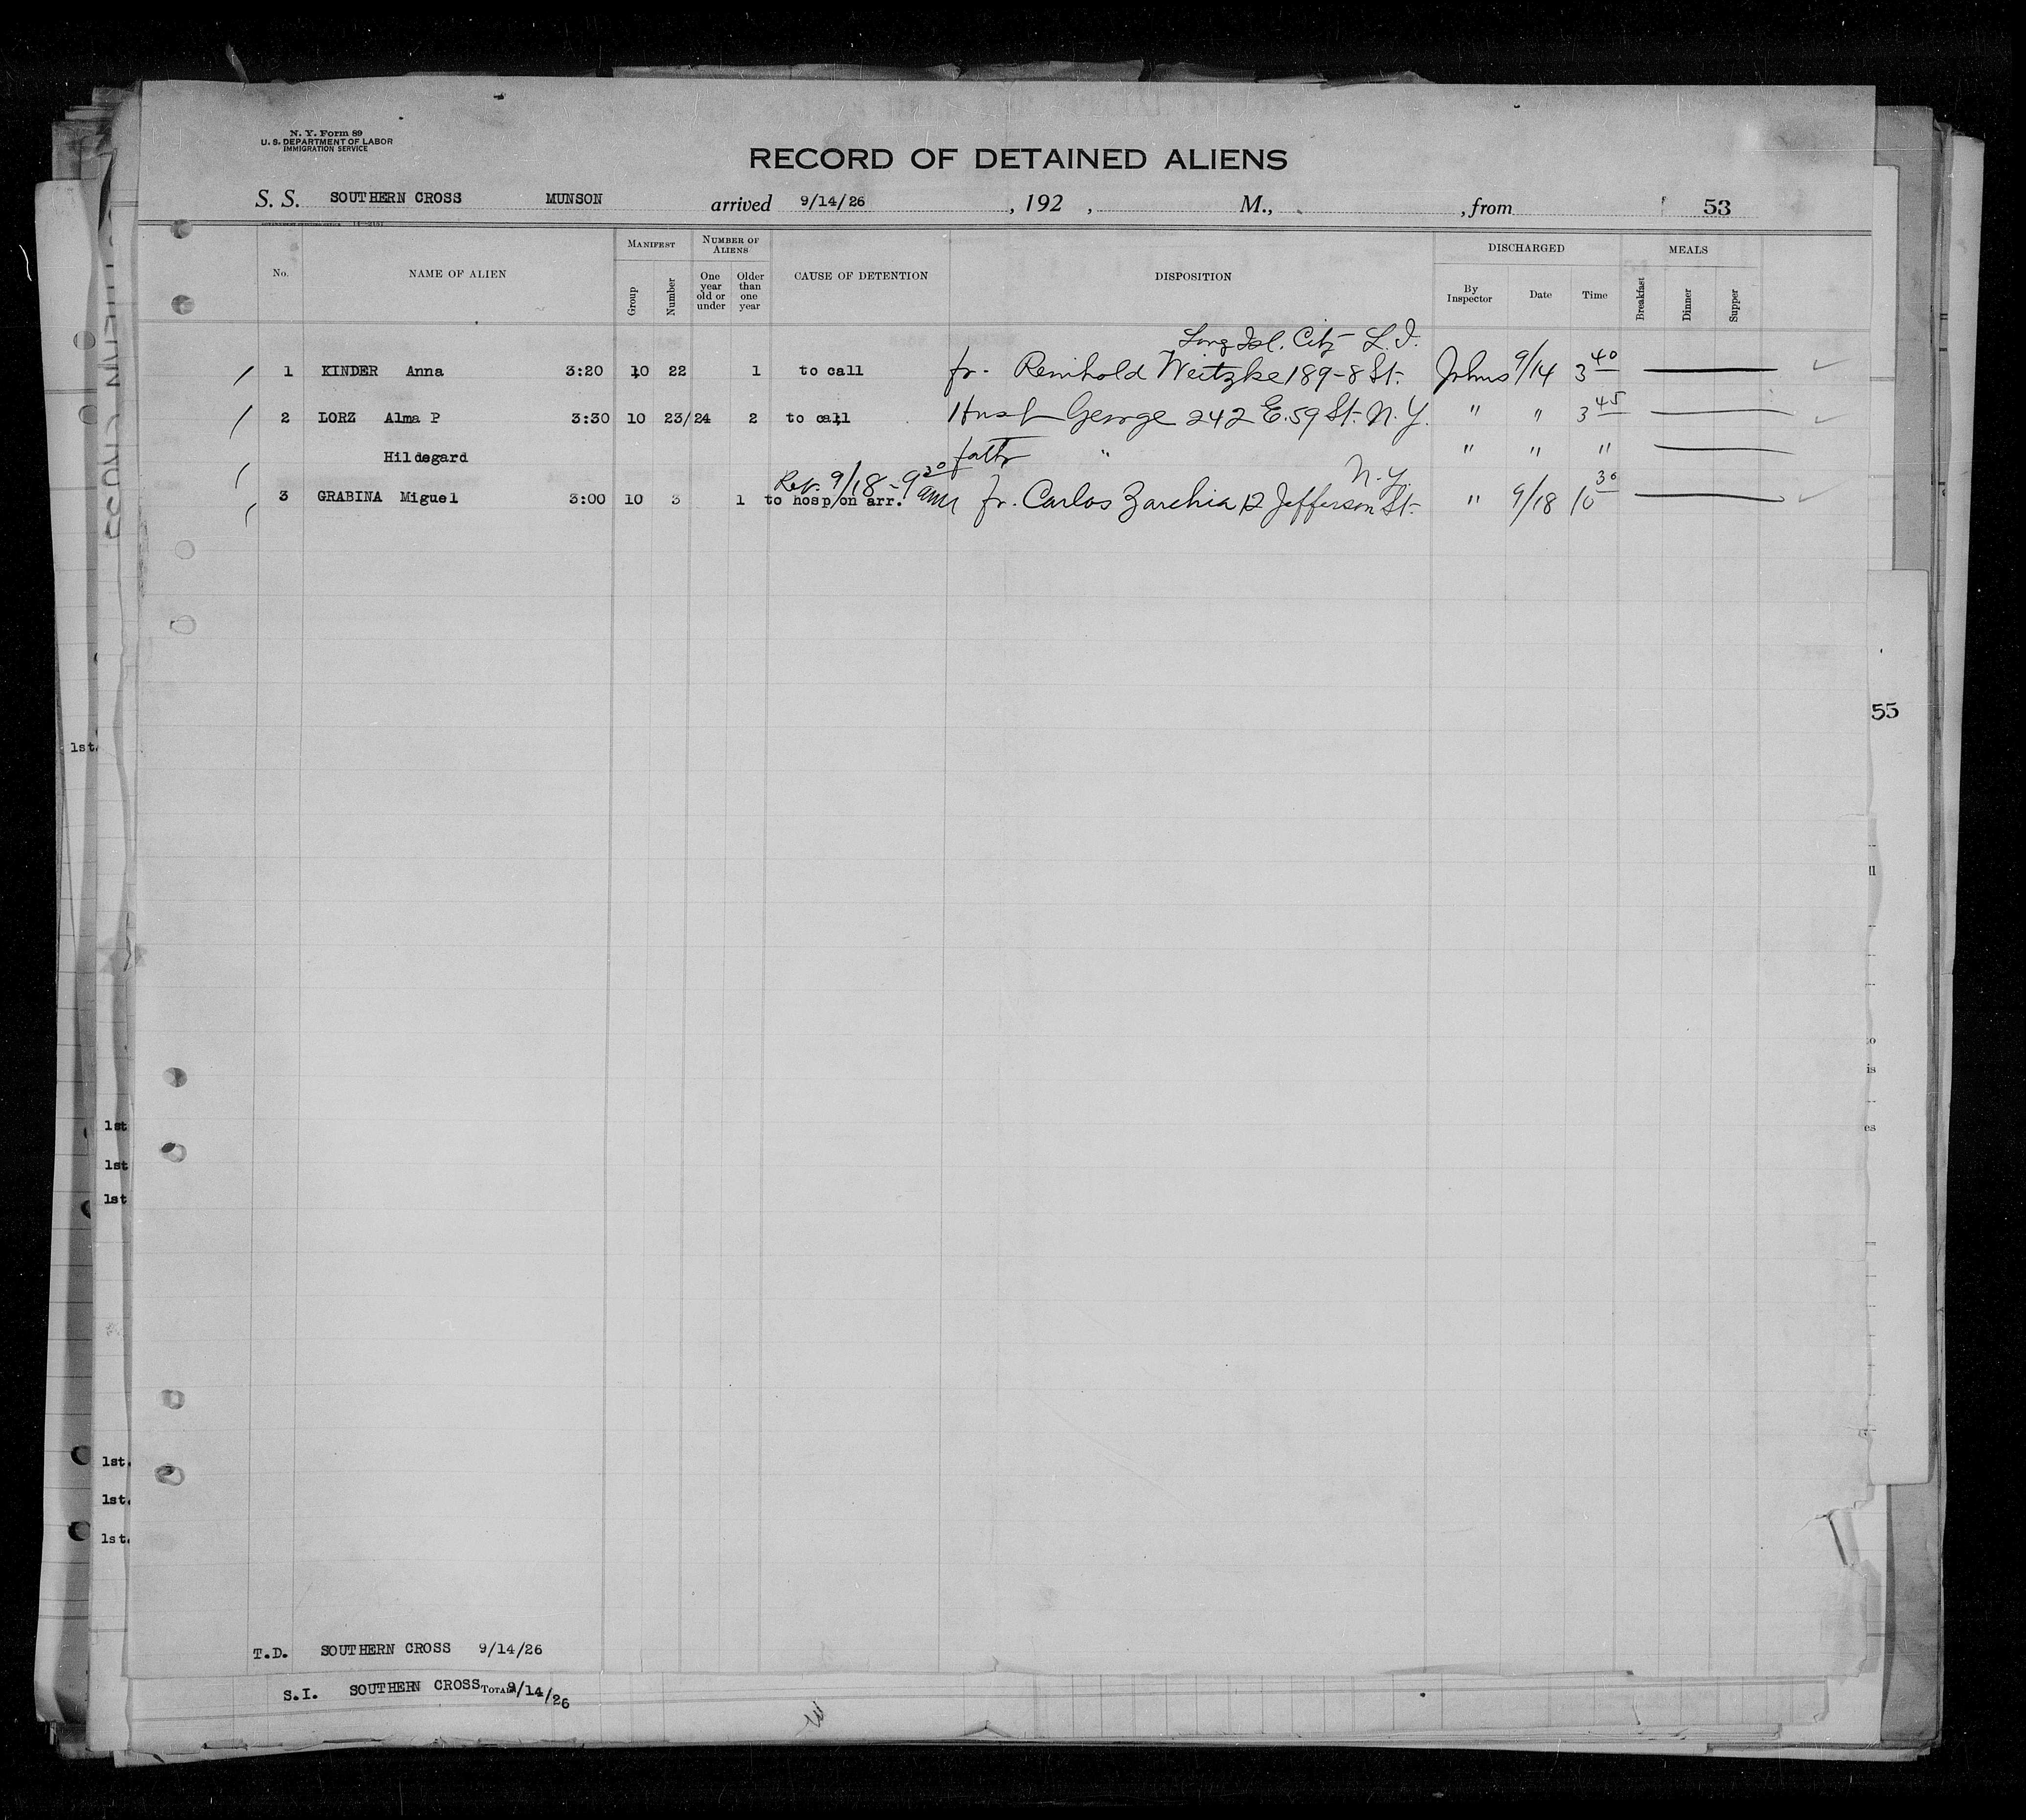 N. Y. Form 89
U. S. DEPARTMENT OF LABOR
IMMIGRATION SERVICE
RECORD OF DETAINED ALIENS
S. S. SOUTHERN CROSS MUNSON arrived 9/14/26 , 192 , M., , from 53
No. NAME OF ALIEN MANIFEST Group Number NUMBER OF ALIENS One year old or under Older than one year CAUSE OF DETENTION DISPOSITION DISCHARGED By Inspector Date Time MEALS Breakfast Dinner Supper
Long Isl. City L.I.
1 KINDER Anna 3:20 10 22 1 to call fr. Reinhold Weitzke 189-8 St. Johns 9/14 3 40
2 LORZ Alma P 3:30 10 23/24 2 to call Husb George 242 E. 59 St. N.Y. " " 3 45
Hildegard fath " " " "
Rev. 9/18 - 9 30 am N.Y.
3 GRABINA Miguel 3:00 10 3 1 to hosp/on arr. fr. Carlos Zarchia 12 Jefferson St. " 9/18 10 30
55
1st
1st
1st
1st
1st.
1st.
1st.
T.D. SOUTHERN CROSS 9/14/26
S.I. SOUTHERN CROSS TOTAL 9/14/26